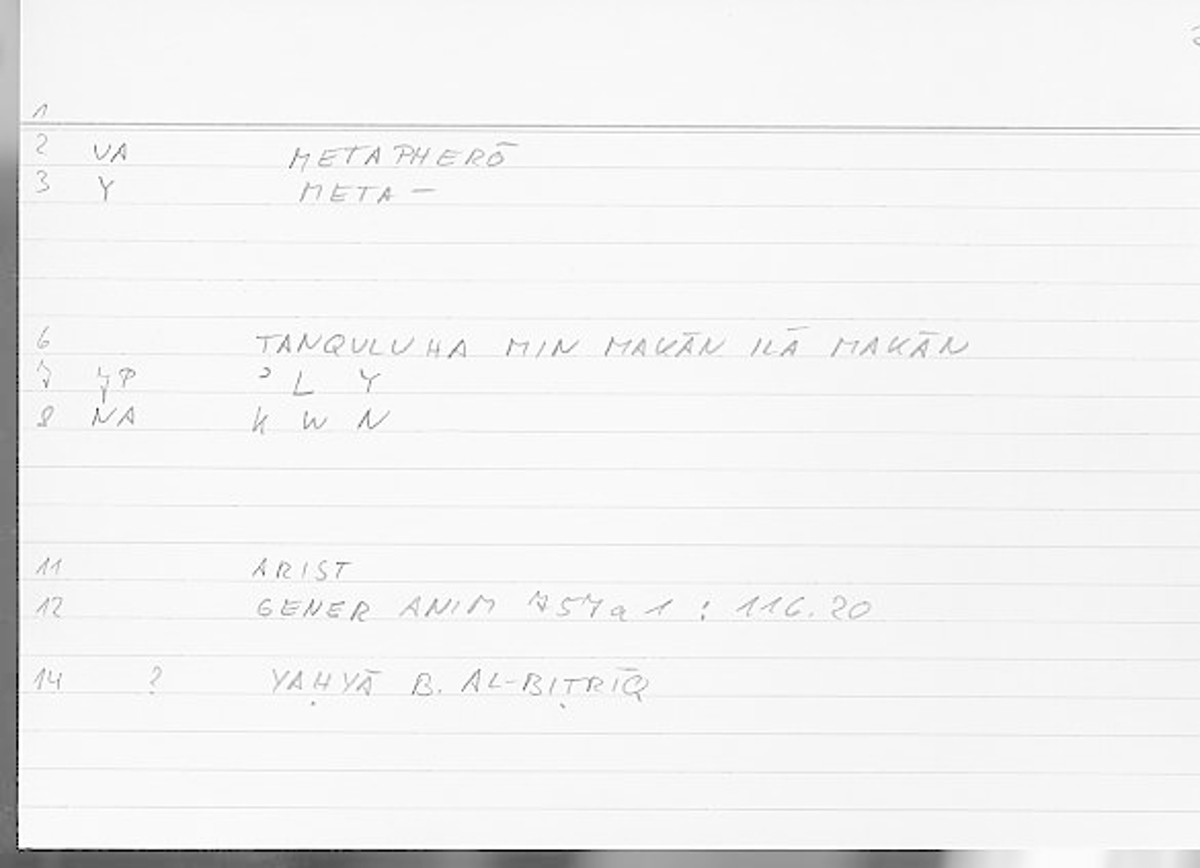 1
2 VA METAPHERŌ
3 Y META –
6 TANQULUHA MIN MAKĀN ILĀ MAKĀN
7 ʾ L Y
8 NA K W N
11 ARIST
12 GENER ANIM 757a1 : 116.20
14 ? YAḤYĀ B. AL-BIṬRĪQ